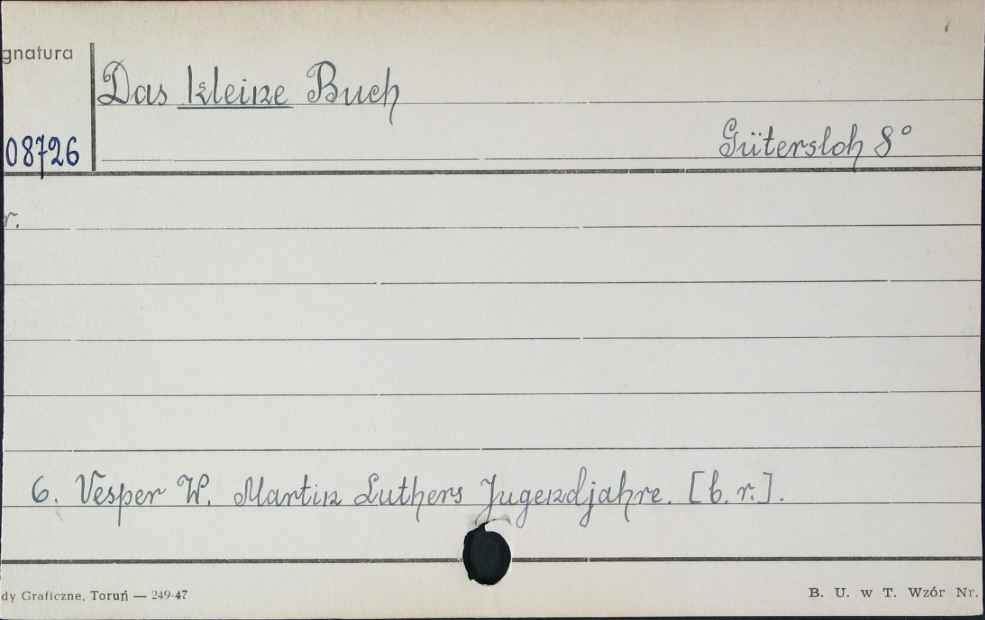 gnatura
Das kleine Buch
Gütersloh 8°
08726
r.
6. Vesper W. Martin Luthers Jugendjahre. [b. r.].
dy Graficzne, Toruń — 249-47
B. U. w T. Wzór Nr.